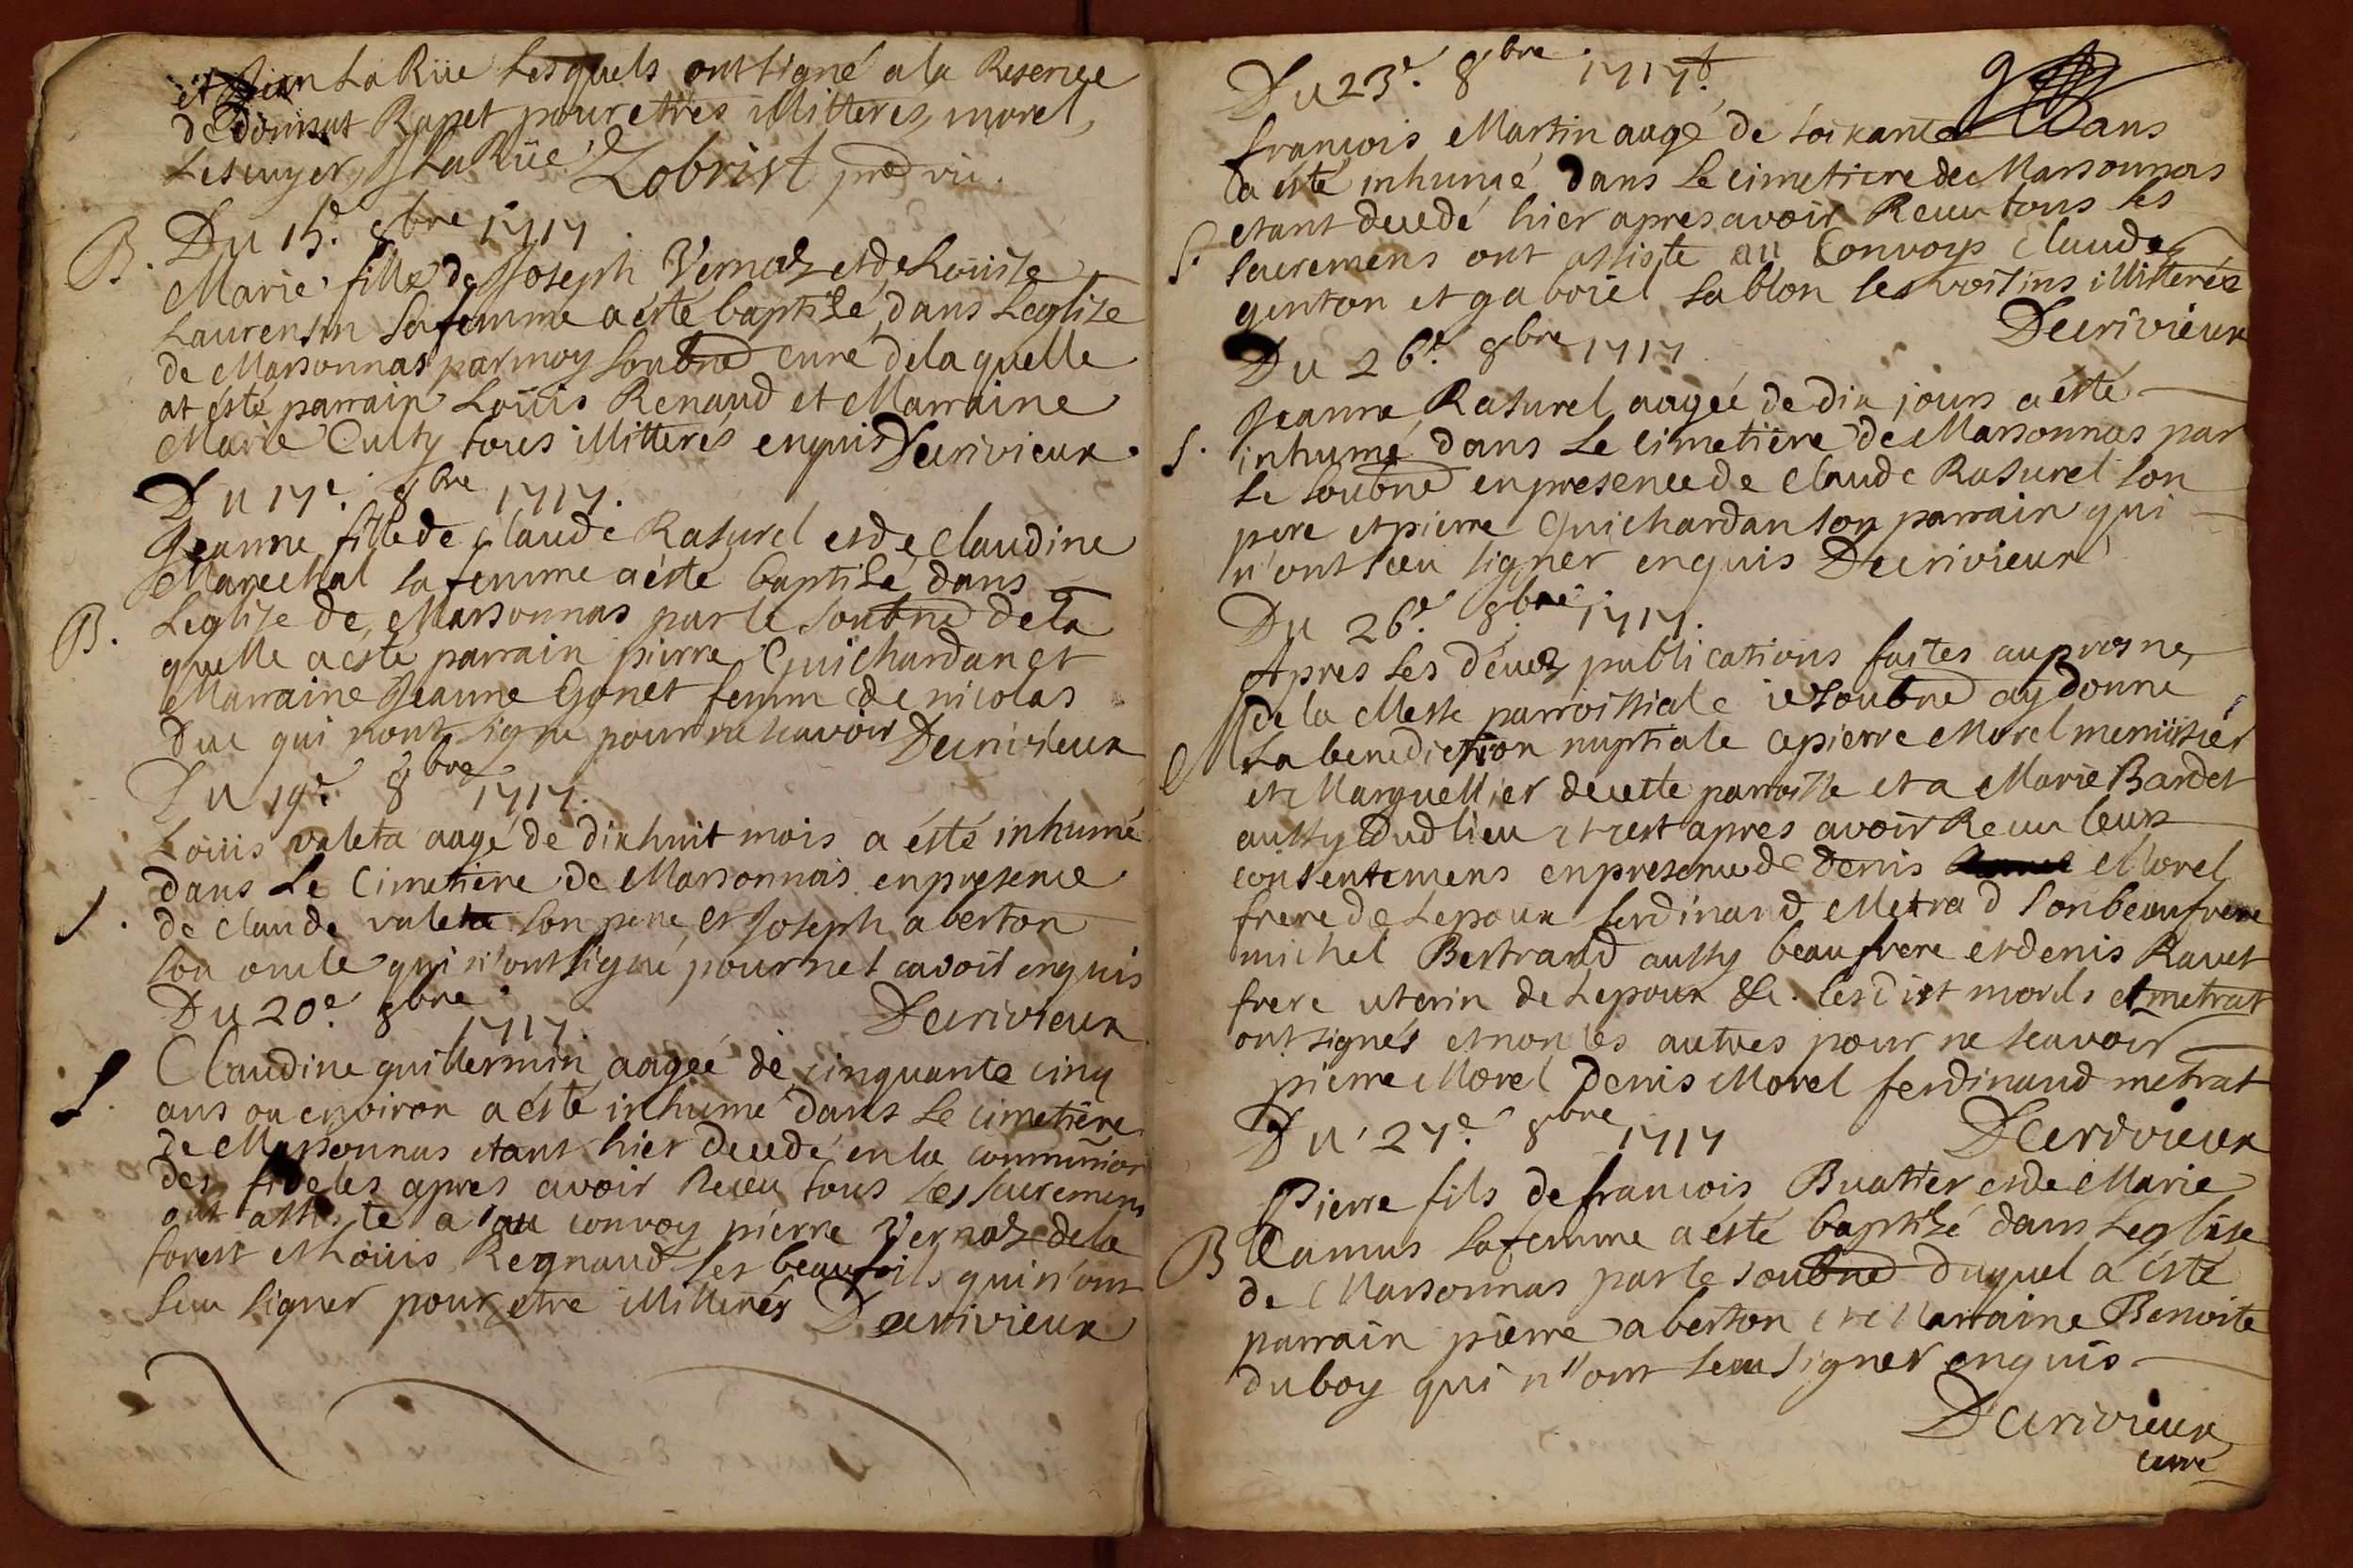 et Jean LaRüe Lesquels ont signé a la Reserve
de donnat Rapet pour etres illitteres, morel,
Lescuyer, J LaRüe, Zobrist pre vic.
B. Du 15e. 8bre 1717
Marie fille de Joseph Vernaz et de Loüise
Laurensin sa femme a esté baptisé, dans Leglise
de Marsonnas par moy soubné curé de laquelle
at esté parrain Loüis Renaud et Marraine
Marie Culty tous illitterés enquis Decrivieux.
Du 17e. 8bre 1717.
Jeanne fille de claude Rasurel et de claudine
Marechal sa femme a esté baptisé dans
B. Leglise de Marsonnas par le soubné de la
quelle a esté parrain pierre Guichardan et
Marraine Jeanne Gonet femme de nicolas
Duc qui n'ont signe pour ne scavoir Decrivieux
Du 19e. 8bre 1717.
Loüis valeta aagé de dixhuit mois a ésté inhumé
dans Le Cimetiere de Marsonnas en presence
S. de claude valeta son pere, et Joseph aberton
son oncle qui n'ont signé pour ne scavoir enquis
Du 20e. 8bre 1717. Decrivieux
S. Claudine guillermin aageé de cinquante cinq
ans ou environ a ésté inhumé dans Le cimetière
de Marsonnas etant hier decedé en la communion
des fideles apres avoir Receu tous Les sacremens
ont assisté a sau convoy pierre Vernaz de la
forest et Loüis Regnaud ses beaufils qui n'ont
sceu signer pour etre illitterés Decrivieux
Du 23e. 8bre 1717.
francois Martin aagé de soixante ans
a esté inhumé dans Le cimetiere de Marsonnas
etant decedé hier apres avoir Receu tous les
S. sacremens ont assiste au Convoys claude
genton et gabriel sablon les voisins illitterés
Decrivieux
Du 26e. 8bre 1717.
Jeanne Rasurel aageé de dix jours a esté
S. inhumé dans Le cimetière de Marsonnas par
le soubné en presence de claude Rasurel son
pere et pierre Guichardan son parrain qui
n'ont sceu signer enquis Decrivieux
Du 26e. 8bre 1717.
Apres les deuez publications faites au prosne
de la Messe parroissiale ie soubné ay donné
M La benediction nuptiale a pierre Morel menuisier
et Marguellier de cette parroisse et a Marie Bardet
aussy dud lieu et c'est apres avoir Receu leurs
consentemens en presence de denis Morel
frere de Lepoux ferdinand Metrad son beaufrere
michel Bertrand aussy beaufrere et denis Ravet
frere uterin de Lepoux &c. lesdist morels et metrat
ont signés et non les autres pour ne scavoir
pierre Morel denis Morel ferdinand metrat
Du 27e. 8bre 1717 Decrivieux
Pierre fils de francois Buatier et de Marie
B Camus sa femme a ésté baptisé dans Leglise
de Marsonnas par le soubné duquel a ésté
parrain pierre aberton et Marraine Benoite
duboy qui n'ont sceu signer enquis
Decrivieux
curé